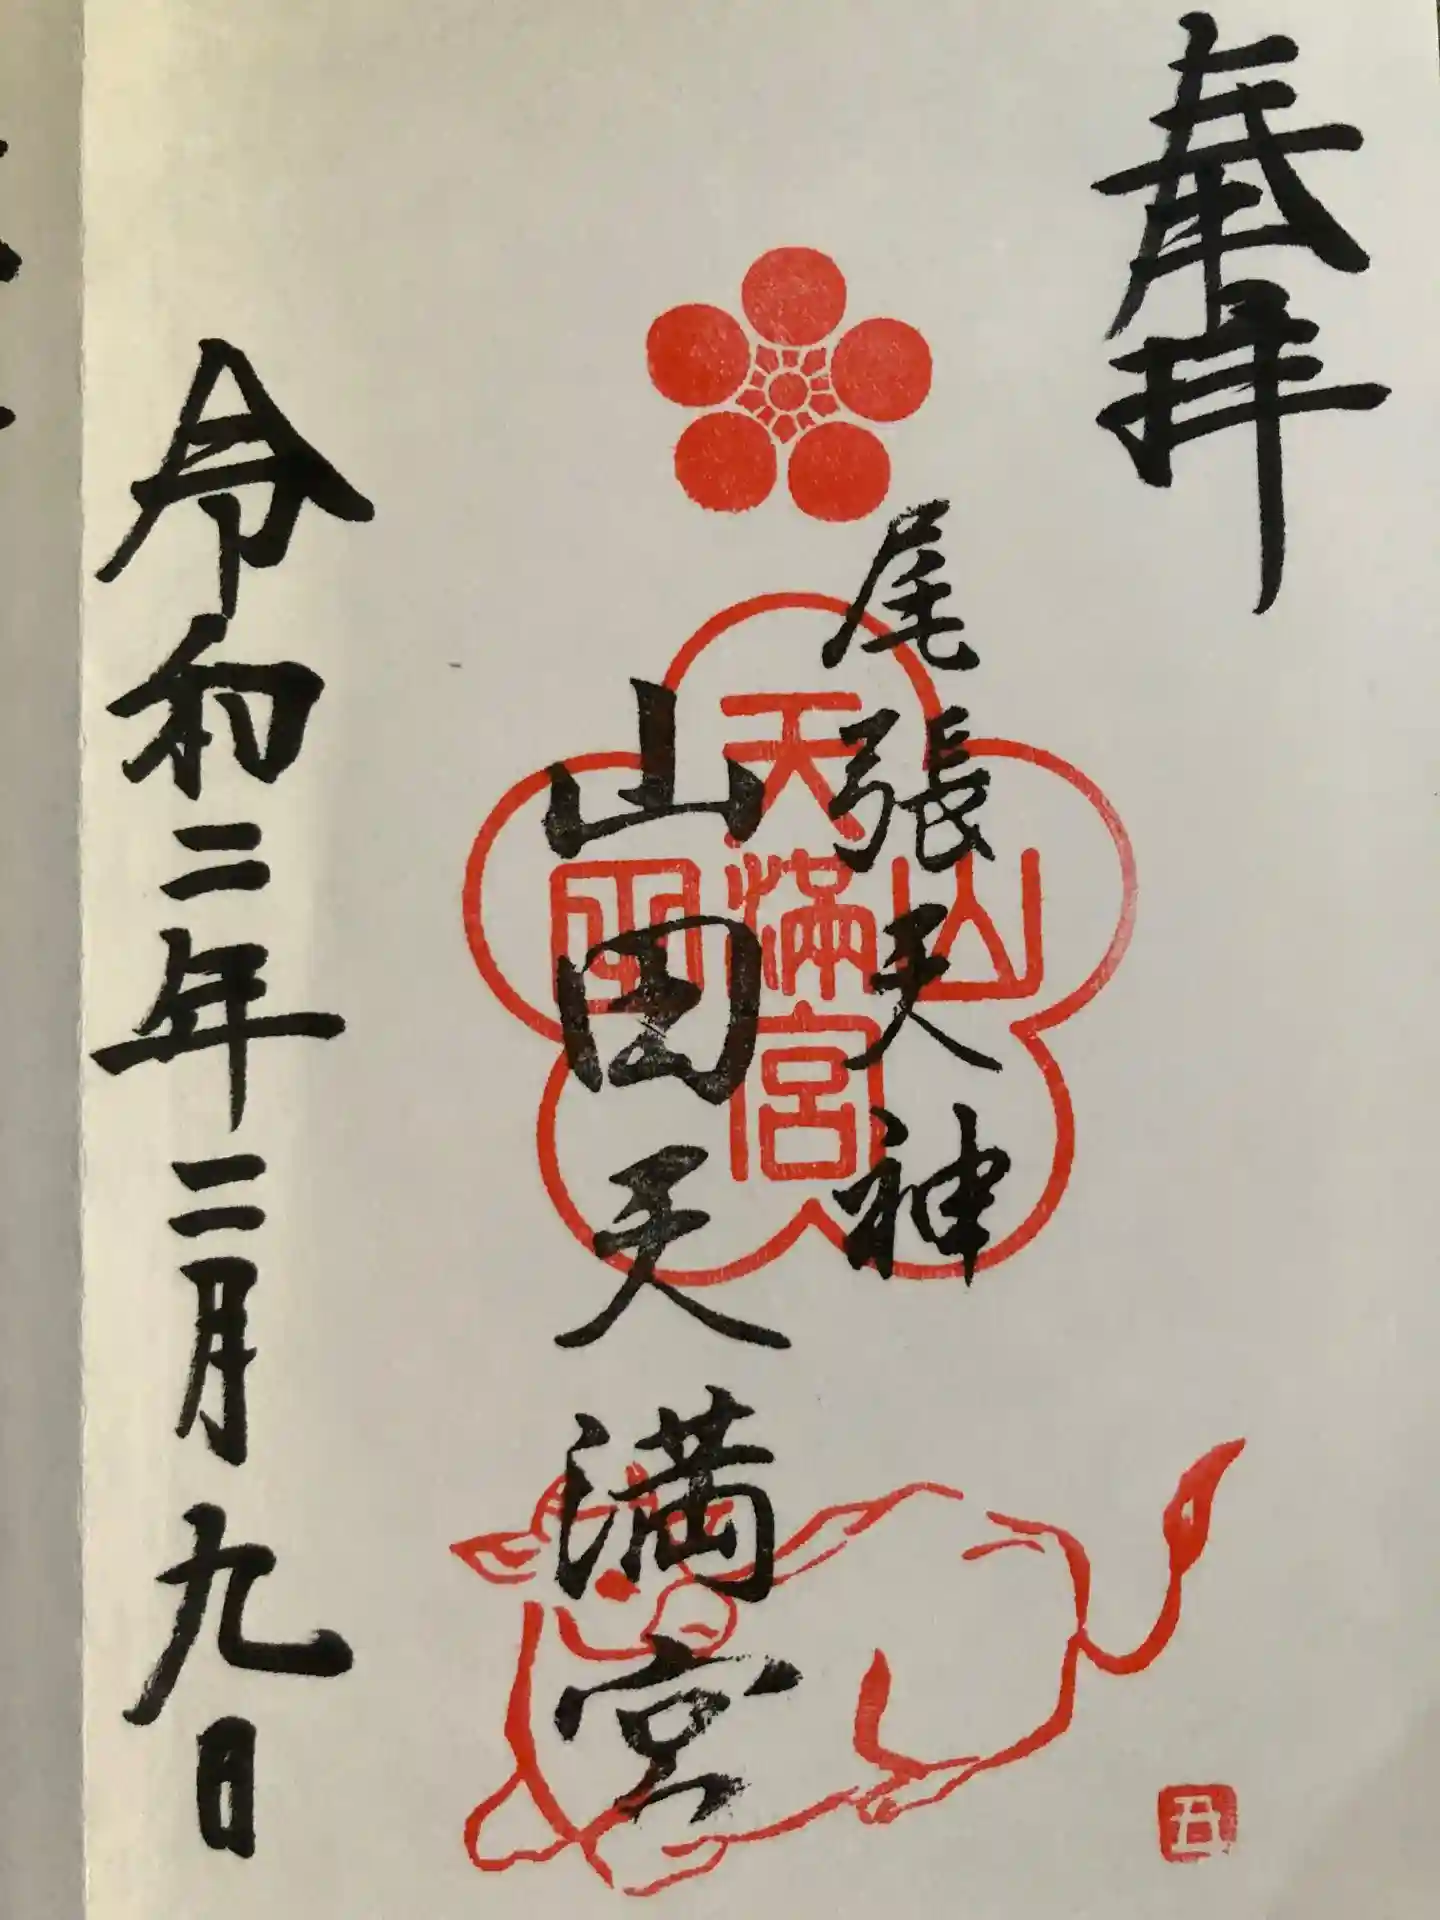 奉拝
尾張天神
山田天満宮
山田
天満宮
令和二年二月九日
丑